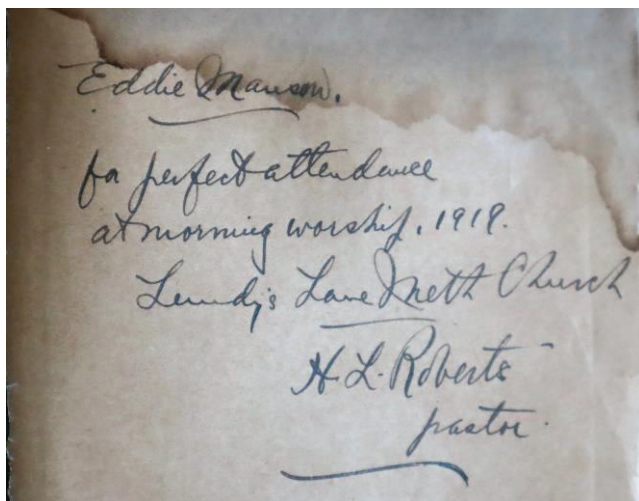 Eddie Manson.
for perfect attendance
at morning worship, 1919.
Lundy's Lane Meth Church
H L. Roberts
pastor.